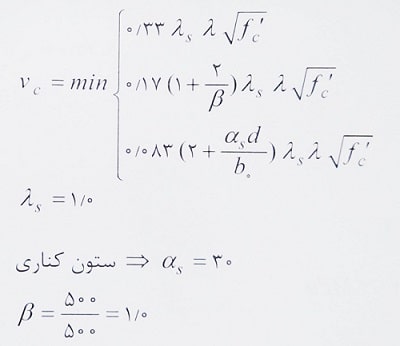 v_c = min { ۰/۳۳ λ_s λ √f'_c
۰/۱۷ (۱ + ۲/β) λ_s λ √f'_c
۰/۰۸۳ (۲ + α_s d/b_۰) λ_s λ √f'_c
λ_s = ۱/۰
ستون کناری ⇒ α_s = ۳۰
β = ۵۰۰/۵۰۰ = ۱/۰